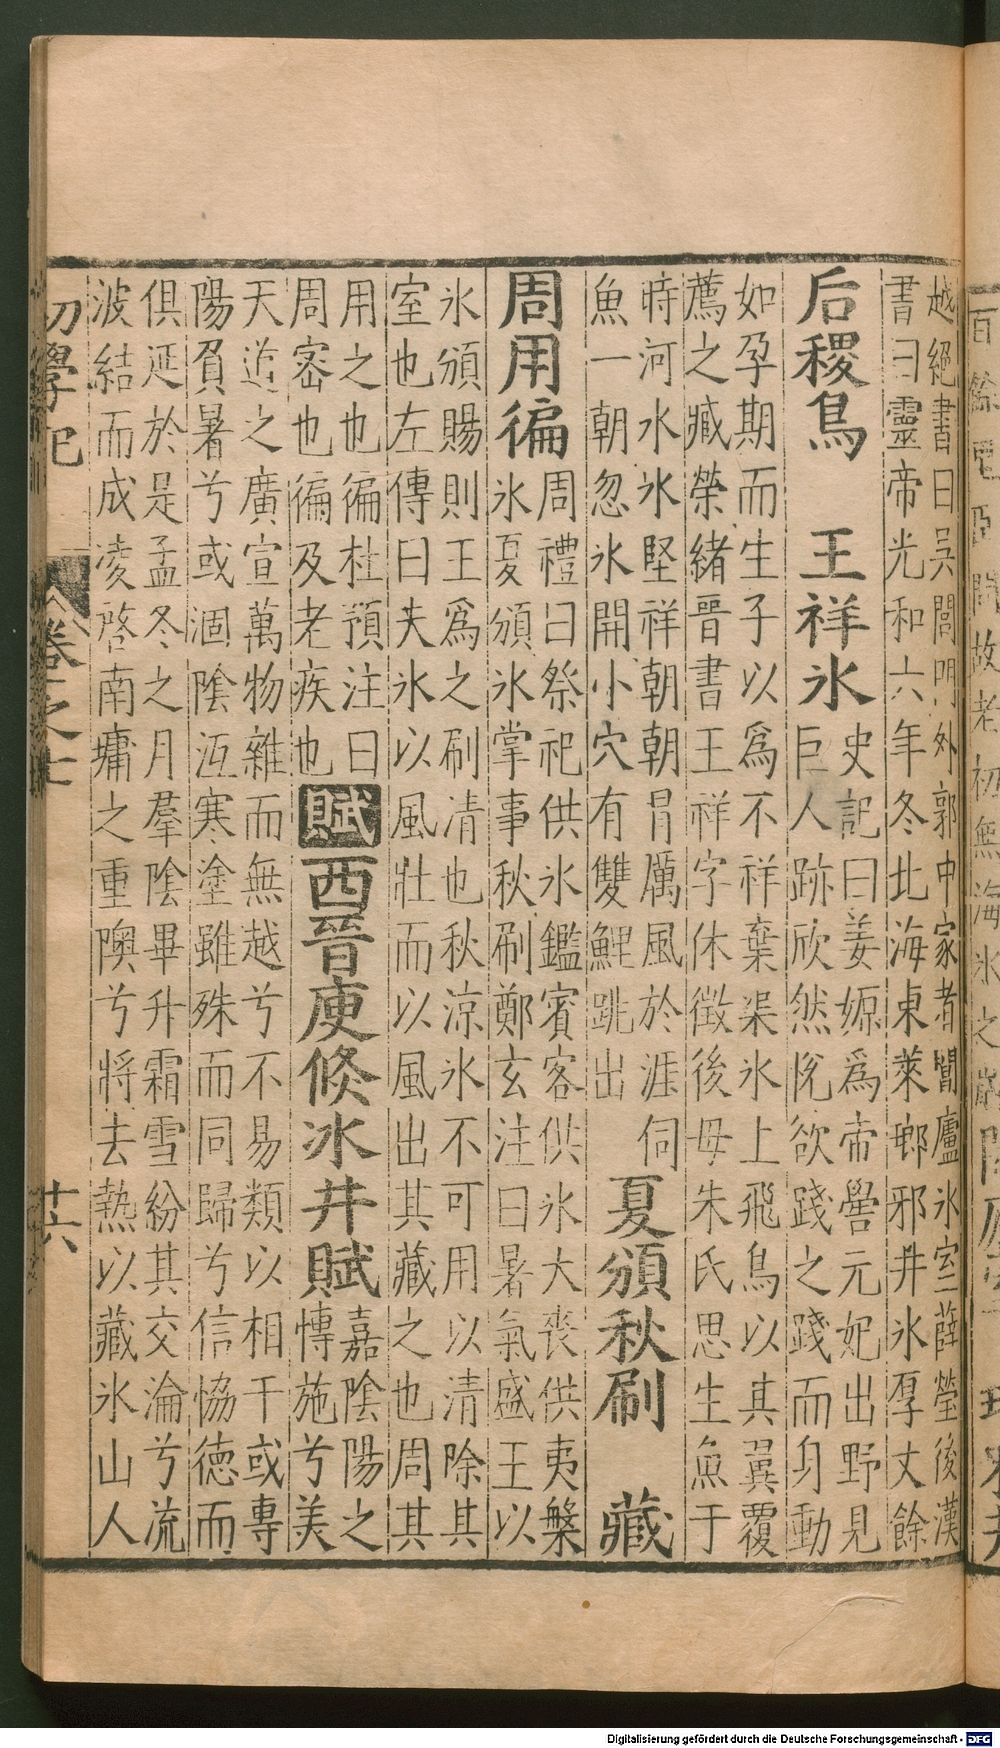 越絕書曰吳閶門外郭中冢者闔廬氷室薛瑩後漢
書曰靈帝光和六年冬北海東萊鄉邪井氷厚丈餘
后稷鳥 王祥氷
史記曰姜嫄為帝嚳元妃出野見
巨人跡欣然悅欲踐之踐而身動
如孕期而生子以為不祥棄渠氷上飛鳥以其翼覆
薦之臧榮緒晉書王祥字休徵後母朱氏思生魚于
時河水氷堅祥朝朝冐厲風於涯伺
魚一朝忽氷開小穴有雙鯉跳出
夏頒秋刷 藏
周用徧
周禮曰祭祀供氷鑑賓客供氷大喪供夷槃
氷夏頒氷掌事秋刷鄭玄注曰暑氣盛王以
氷頒賜則王為之刷清也秋涼氷不可用以清除其
室也左傳曰夫氷以風壯而以風出其藏之也周其
用之也徧杜預注曰
周密也徧及老疾也
賦西晉庾儵冰井賦
嘉陰陽之
博施兮美
天道之廣宣萬物雜而無越兮不易類以相干或專
陽負暑兮或涸陰沍寒塗雖殊而同歸兮信恊德而
俱延於是孟冬之月羣陰畢升霜雪紛其交淪兮流
波結而成凌啓南墉之重隩兮將去熱以藏氷山人
初學記 卷之七 廿六
Digitalisierung gefördert durch die Deutsche Forschungsgemeinschaft - DFG